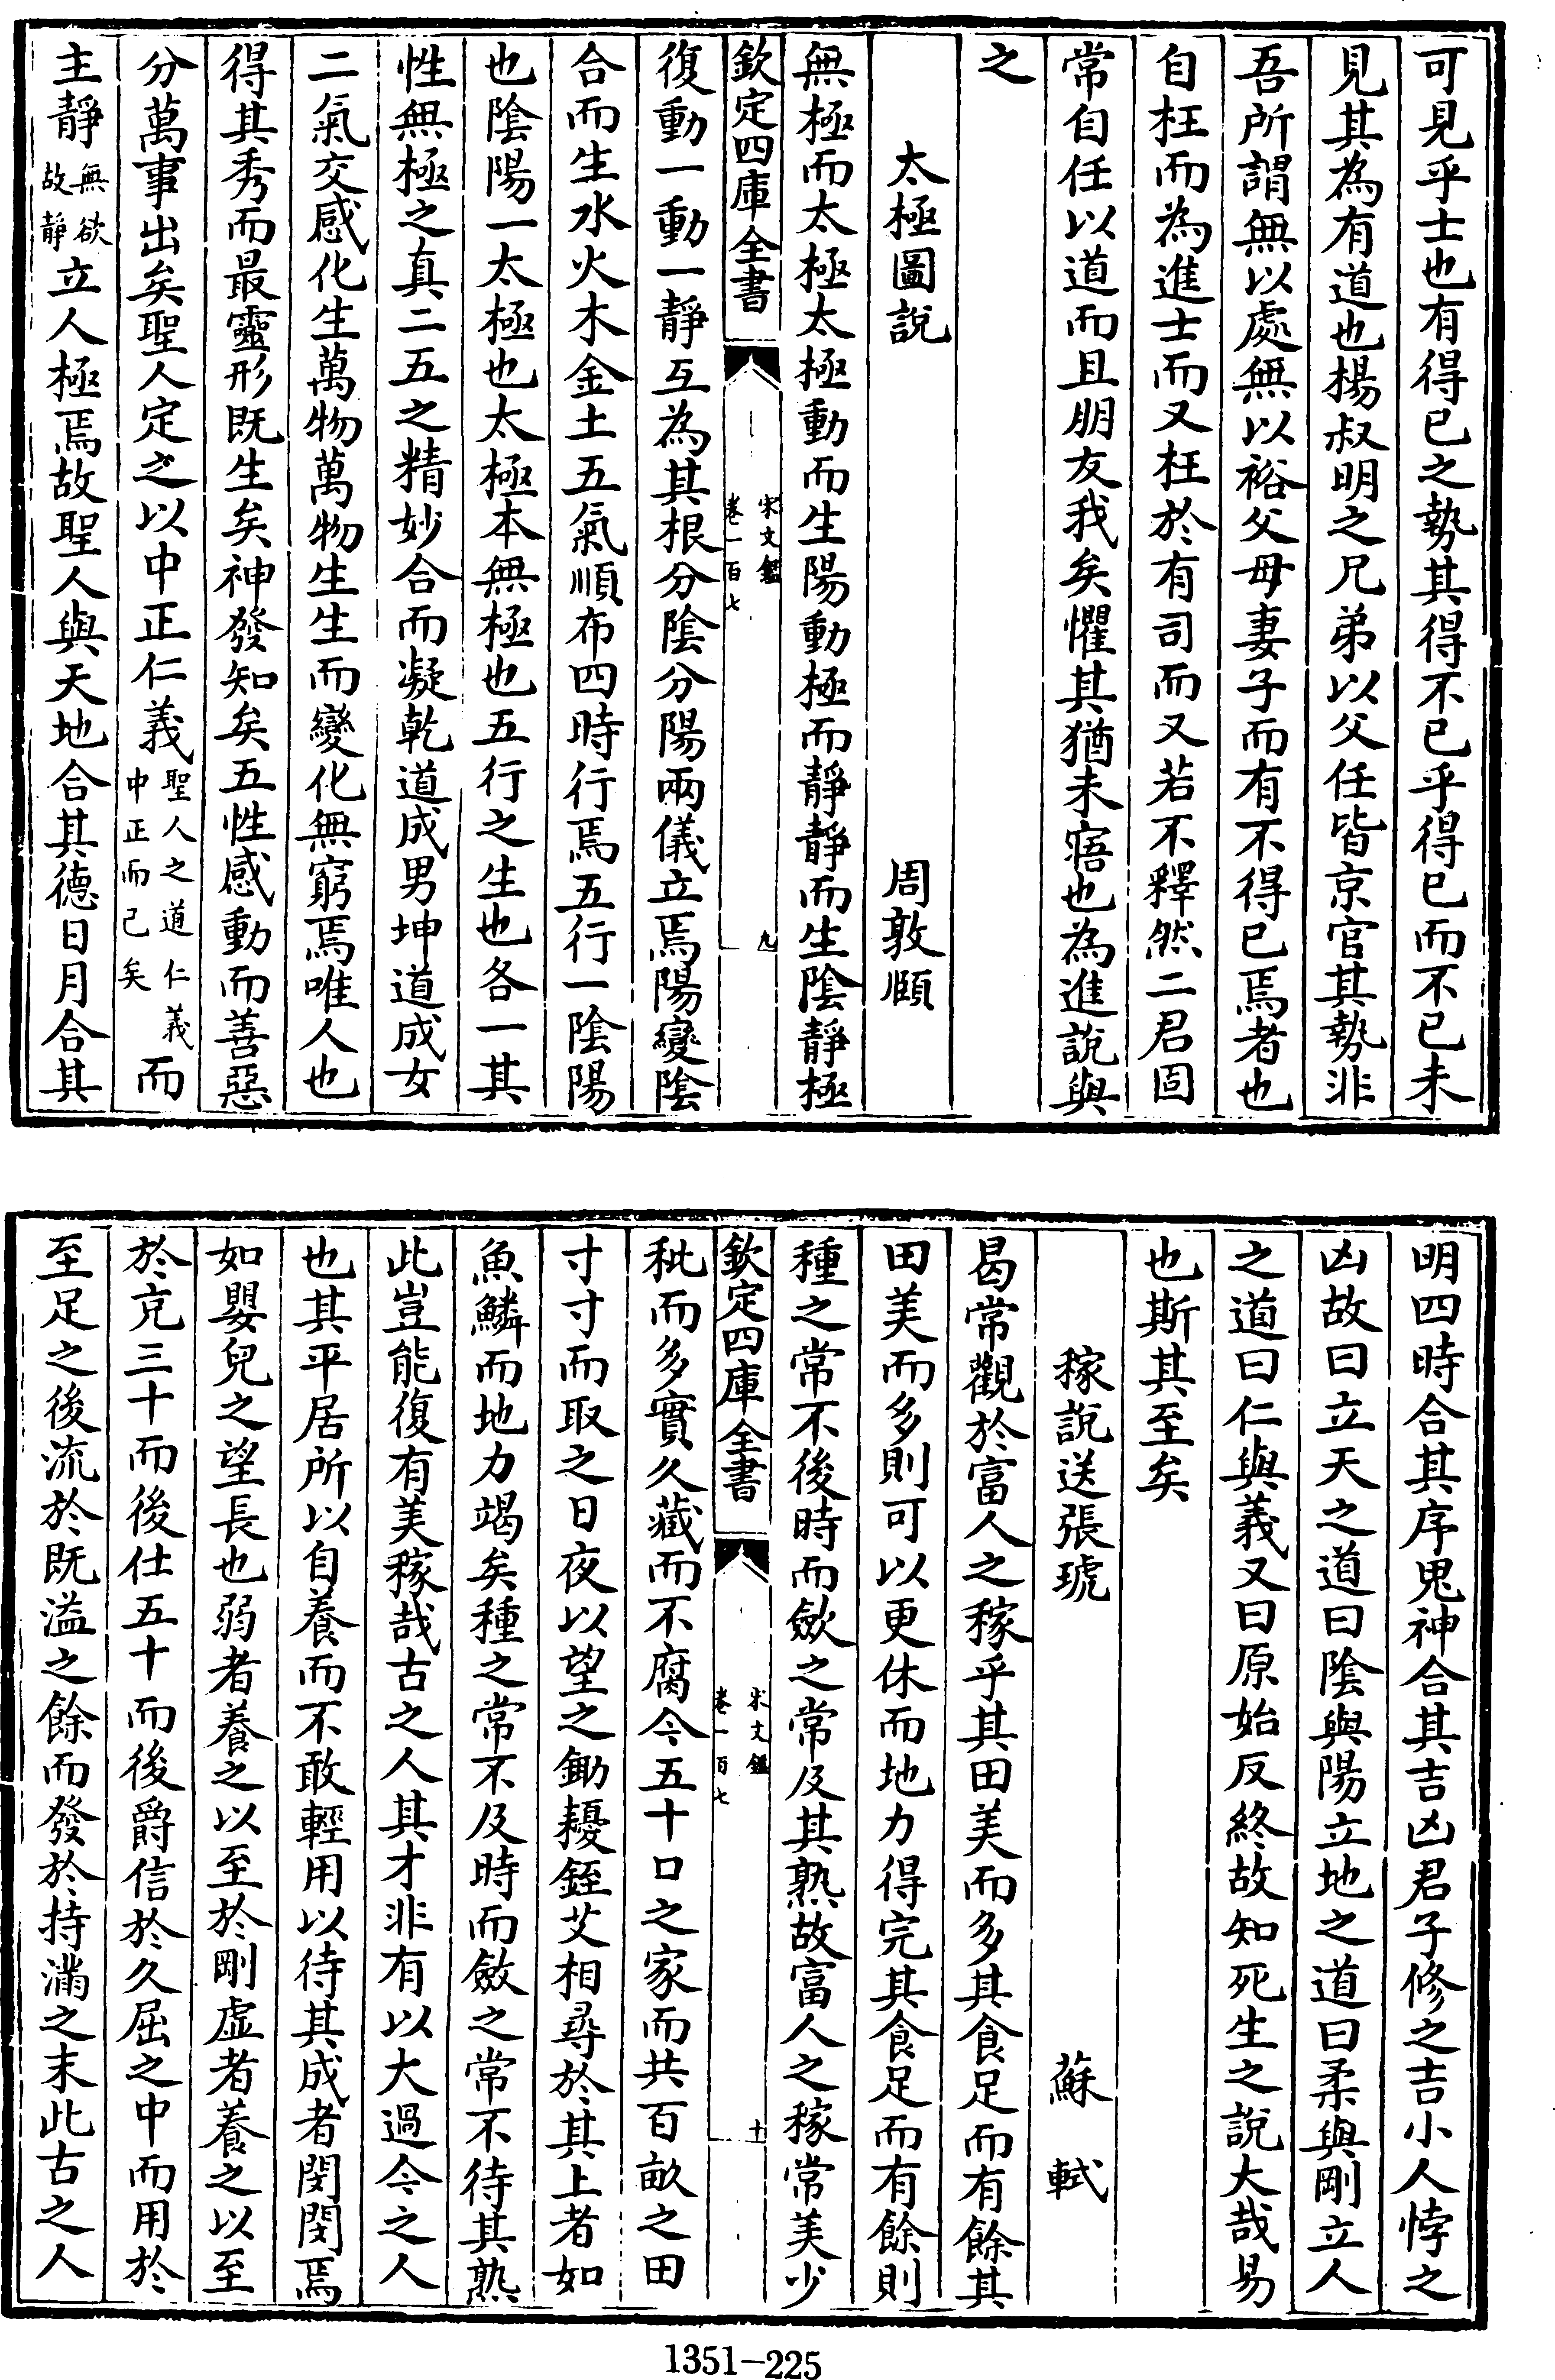 可見乎士也有得已之勢其得不已乎得已而不已未
見其為有道也楊叔明之兄弟以父任皆京官其勢非
吾所謂無以處無以裕父母妻子而有不得已焉者也
自枉而為進士而又枉於有司而又若不釋然二君固
常自任以道而且朋友我矣懼其猶未寤也為進說與
之
太極圖說 周敦頤
無極而太極太極動而生陽動極而靜靜而生陰靜極
欽定四庫全書
宋文鑑
卷一百七
九
復動一動一靜互為其根分陰分陽兩儀立焉陽變陰
合而生水火木金土五氣順布四時行焉五行一陰陽
也陰陽一太極也太極本無極也五行之生也各一其
性無極之真二五之精妙合而凝乾道成男坤道成女
二氣交感化生萬物萬物生生而變化無窮焉唯人也
得其秀而最靈形既生矣神發知矣五性感動而善惡
分萬事出矣聖人定之以中正仁義聖人之道仁義中正而已矣而
主靜無欲故靜立人極焉故聖人與天地合其德日月合其
明四時合其序鬼神合其吉凶君子修之吉小人悖之
凶故曰立天之道曰陰與陽立地之道曰柔與剛立人
之道曰仁與義又曰原始反終故知死生之說大哉易
也斯其至矣
稼說送張琥 蘇軾
曷常觀於富人之稼乎其田美而多其食足而有餘其
田美而多則可以更休而地力得完其食足而有餘則
種之常不後時而歛之常及其熟故富人之稼常美少
欽定四庫全書
宋文鑑
卷一百七
十
秕而多實久藏而不腐今五十口之家而共百畝之田
寸寸而取之日夜以望之鋤耰銍艾相尋於其上者如
魚鱗而地力竭矣種之常不及時而斂之常不待其熟
此豈能復有美稼哉古之人其才非有以大過今之人
也其平居所以自養而不敢輕用以待其成者閔閔焉
如嬰兒之望長也弱者養之以至於剛虛者養之以至
於充三十而後仕五十而後爵信於久屈之中而用於
至足之後流於既溢之餘而發於持滿之末此古之人
1351-225